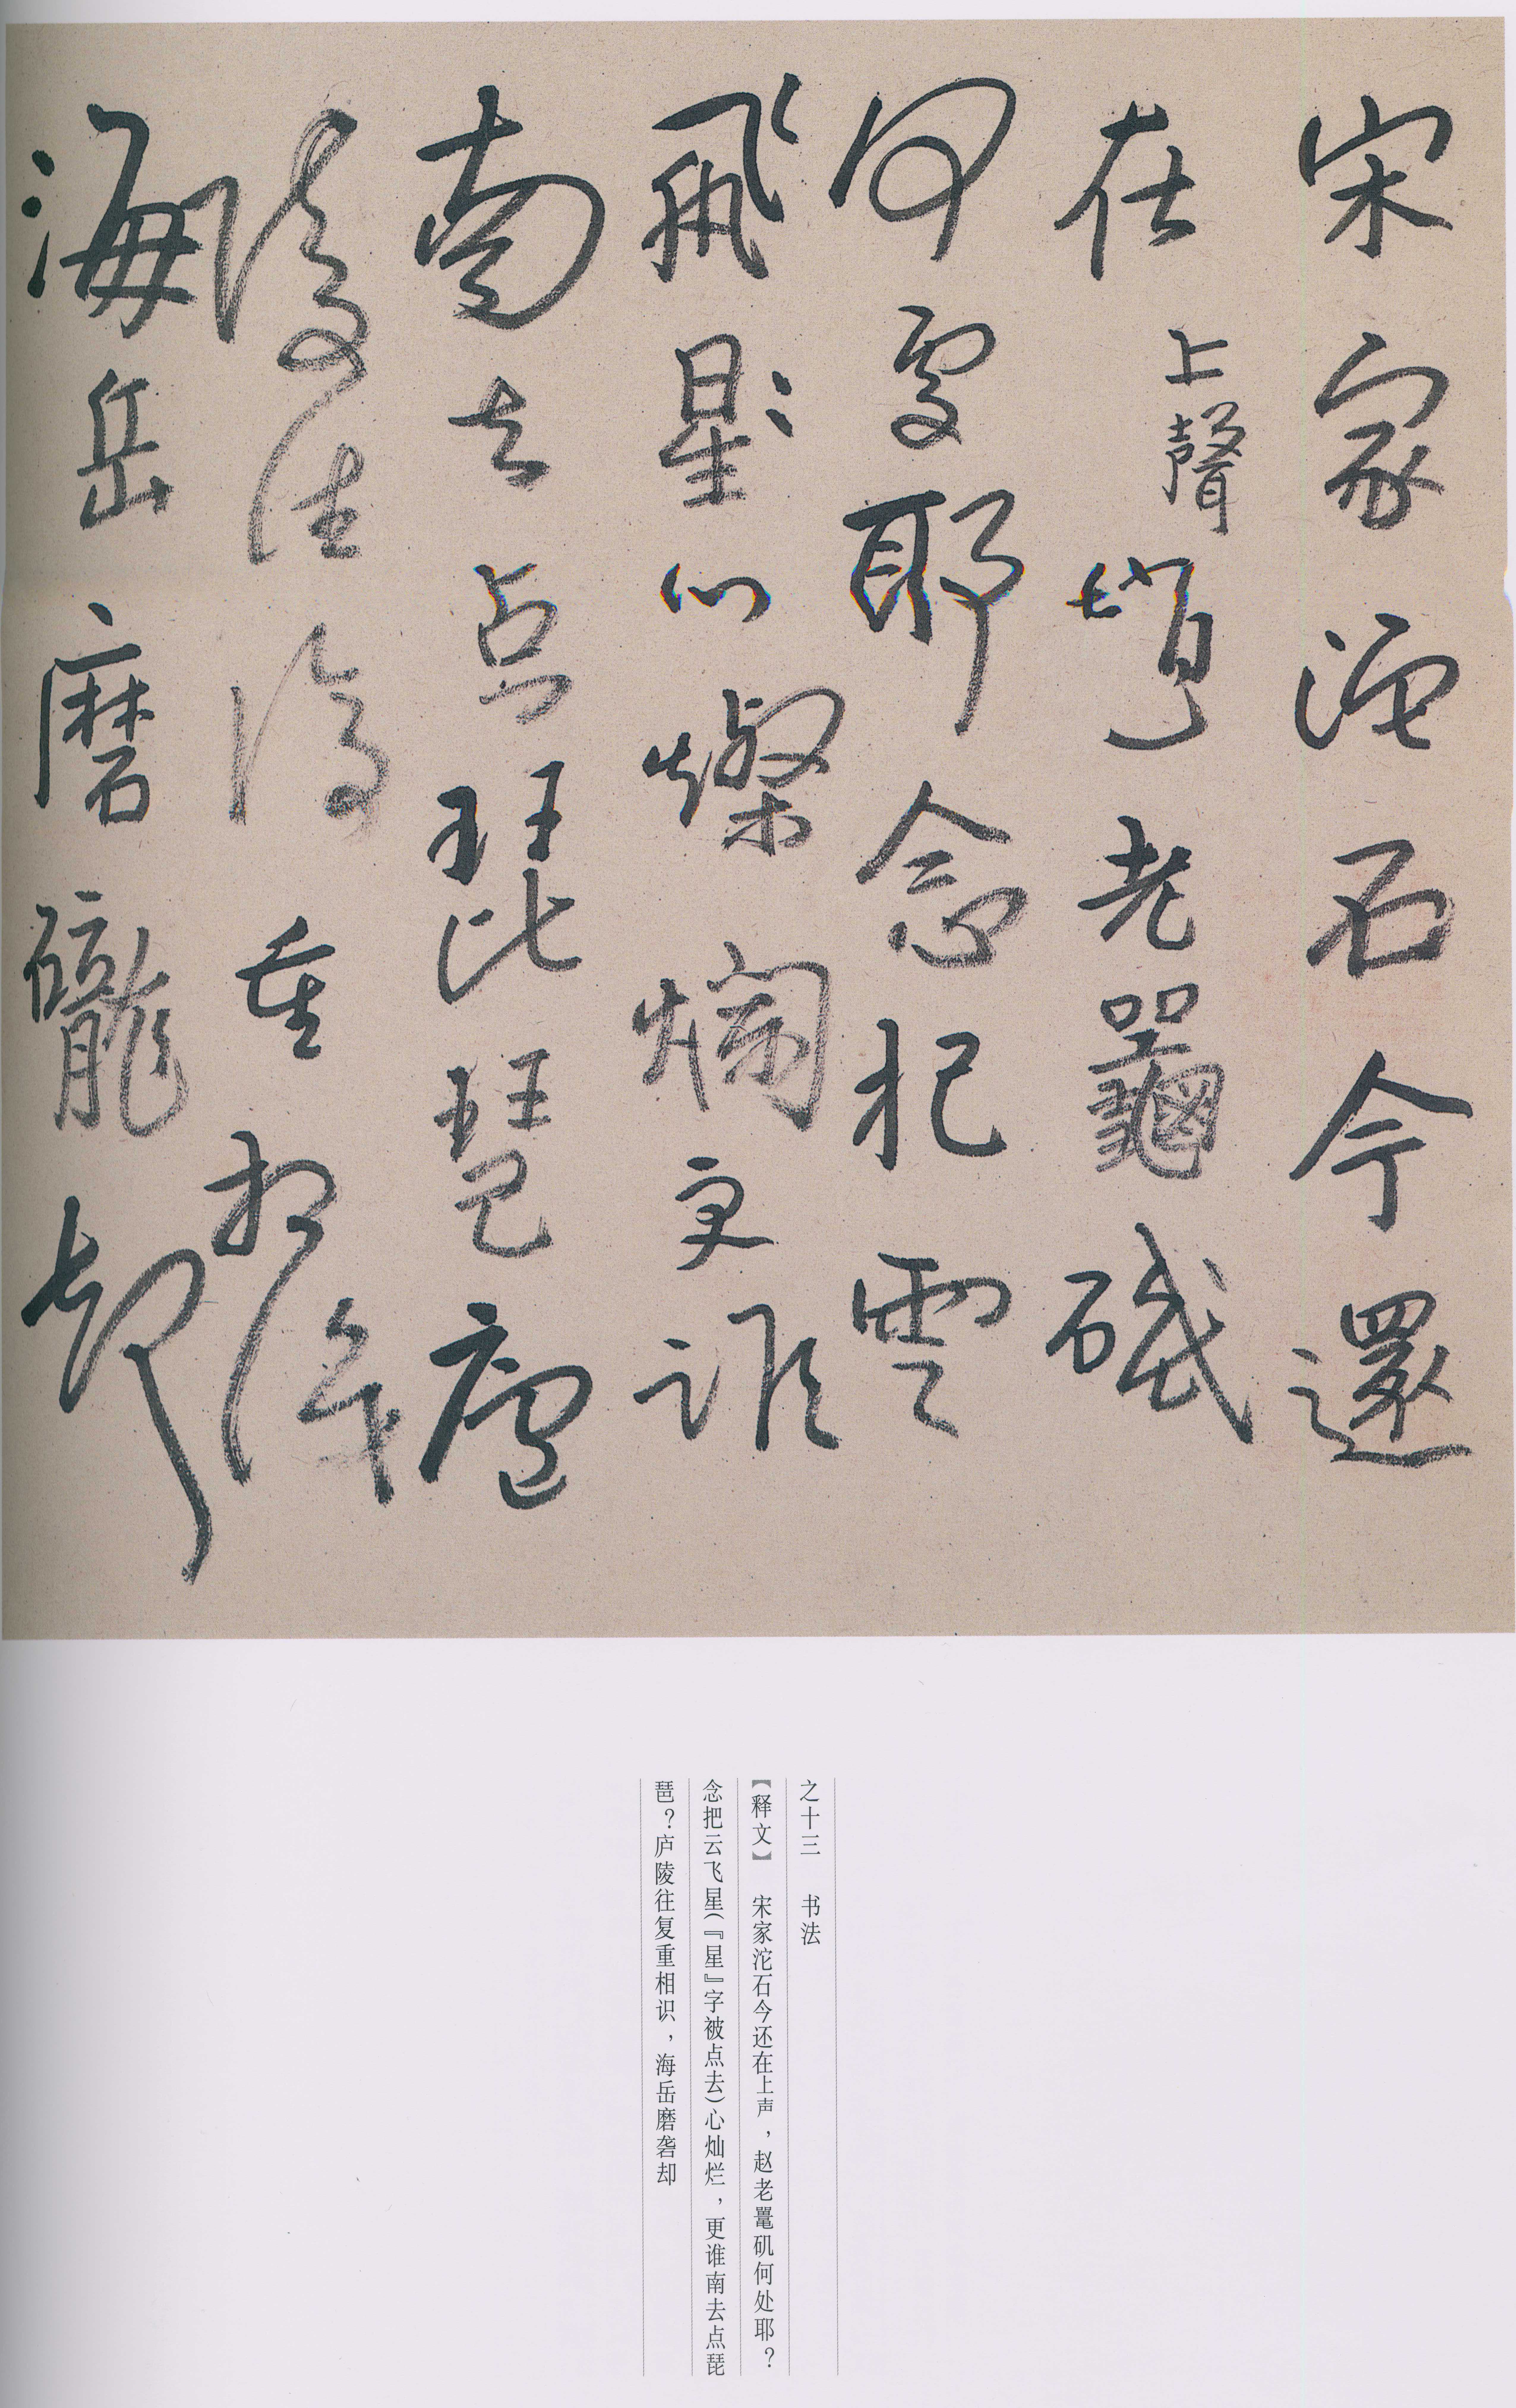 宋家沱石今還
在上聲趙老鼉磯
何處耶念把雲
飛星心燦爛更誰
南去点琵琶廬
陵往復重相識
海岳磨礲却
之十三 书法
【释文】 宋家沱石今还在上声，赵老鼍矶何处耶？
念把云飞星(『星』字被点去)心灿烂，更谁南去点琵
琶？庐陵往复重相识，海岳磨砻却